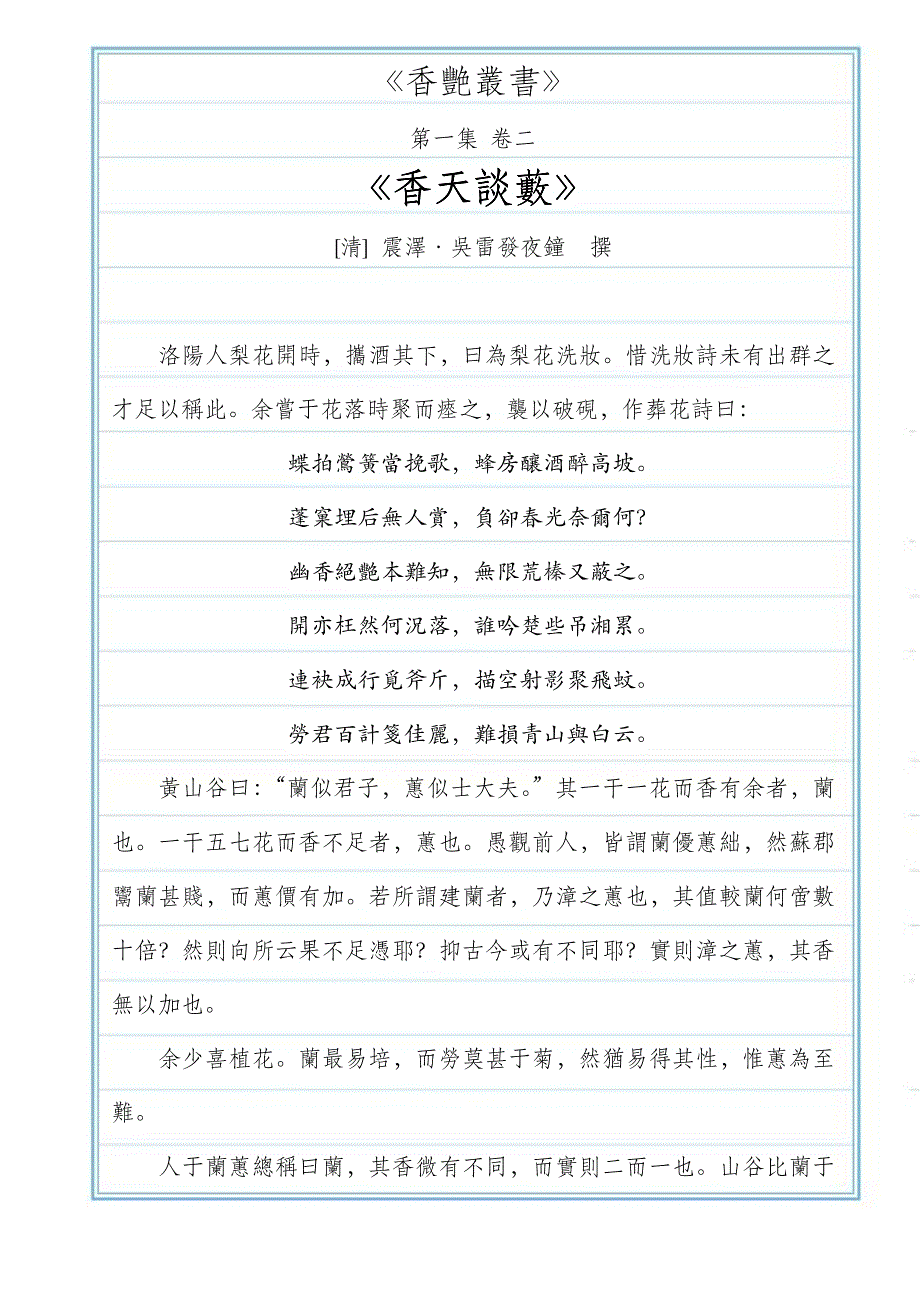 《香艷叢書》
第一集 卷二
《香天談藪》
[清] 震澤·吳雷發夜鐘　撰
洛陽人梨花開時，攜酒其下，曰為梨花洗妝。惜洗妝詩未有出群之
才足以稱此。余嘗于花落時聚而瘞之，襲以破硯，作葬花詩曰：
蝶拍鶯簧當挽歌，蜂房釀酒醉高坡。
蓬窠埋后無人賞，負卻春光奈爾何？
幽香絕艷本難知，無限荒榛又蔽之。
開亦枉然何況落，誰吟楚些吊湘累。
連袂成行覓斧斤，描空射影聚飛蚊。
勞君百計箋佳麗，難損青山與白云。
黃山谷曰：“蘭似君子，蕙似士大夫。”其一干一花而香有余者，蘭
也。一干五七花而香不足者，蕙也。愚觀前人，皆謂蘭優蕙絀，然蘇郡
鬻蘭甚賤，而蕙價有加。若所謂建蘭者，乃漳之蕙也，其值較蘭何啻數
十倍？然則向所云果不足憑耶？抑古今或有不同耶？實則漳之蕙，其香
無以加也。
余少喜植花。蘭最易培，而勞莫甚于菊，然猶易得其性，惟蕙為至
難。
人于蘭蕙總稱曰蘭，其香微有不同，而實則二而一也。山谷比蘭于